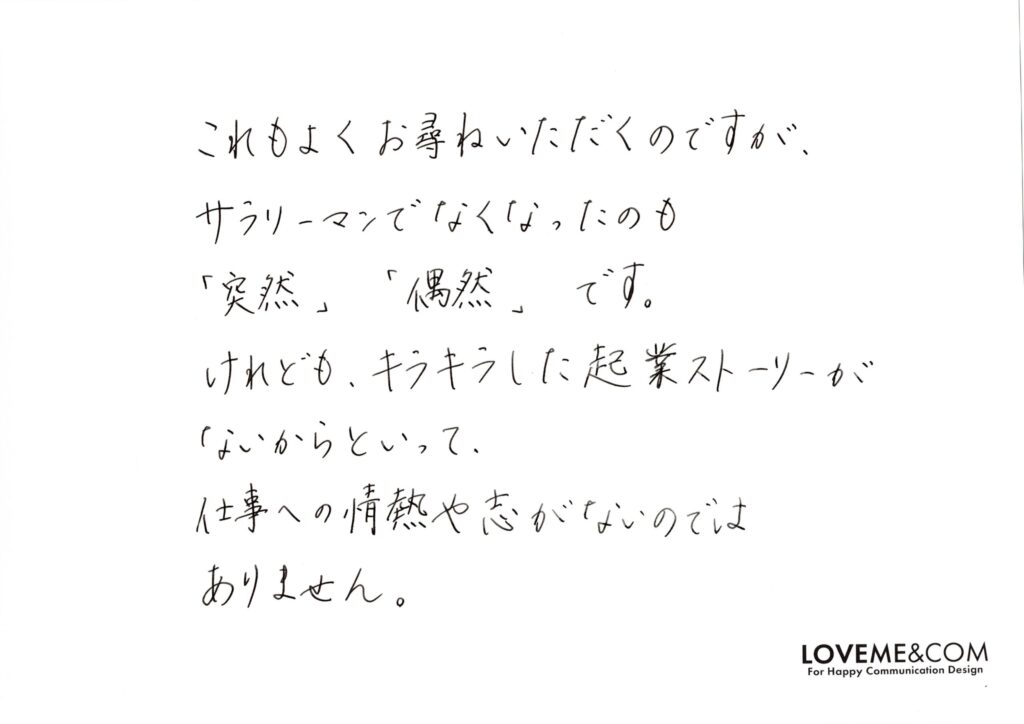 これもよくお尋ねいただくのですが、
サラリーマンでなくなったのも
「突然」 「偶然」 です。
けれども、キラキラした起業ストーリーが
ないからといって、
仕事への情熱や志がないのでは
ありません。
LOVEME&COM
For Happy Communication Design